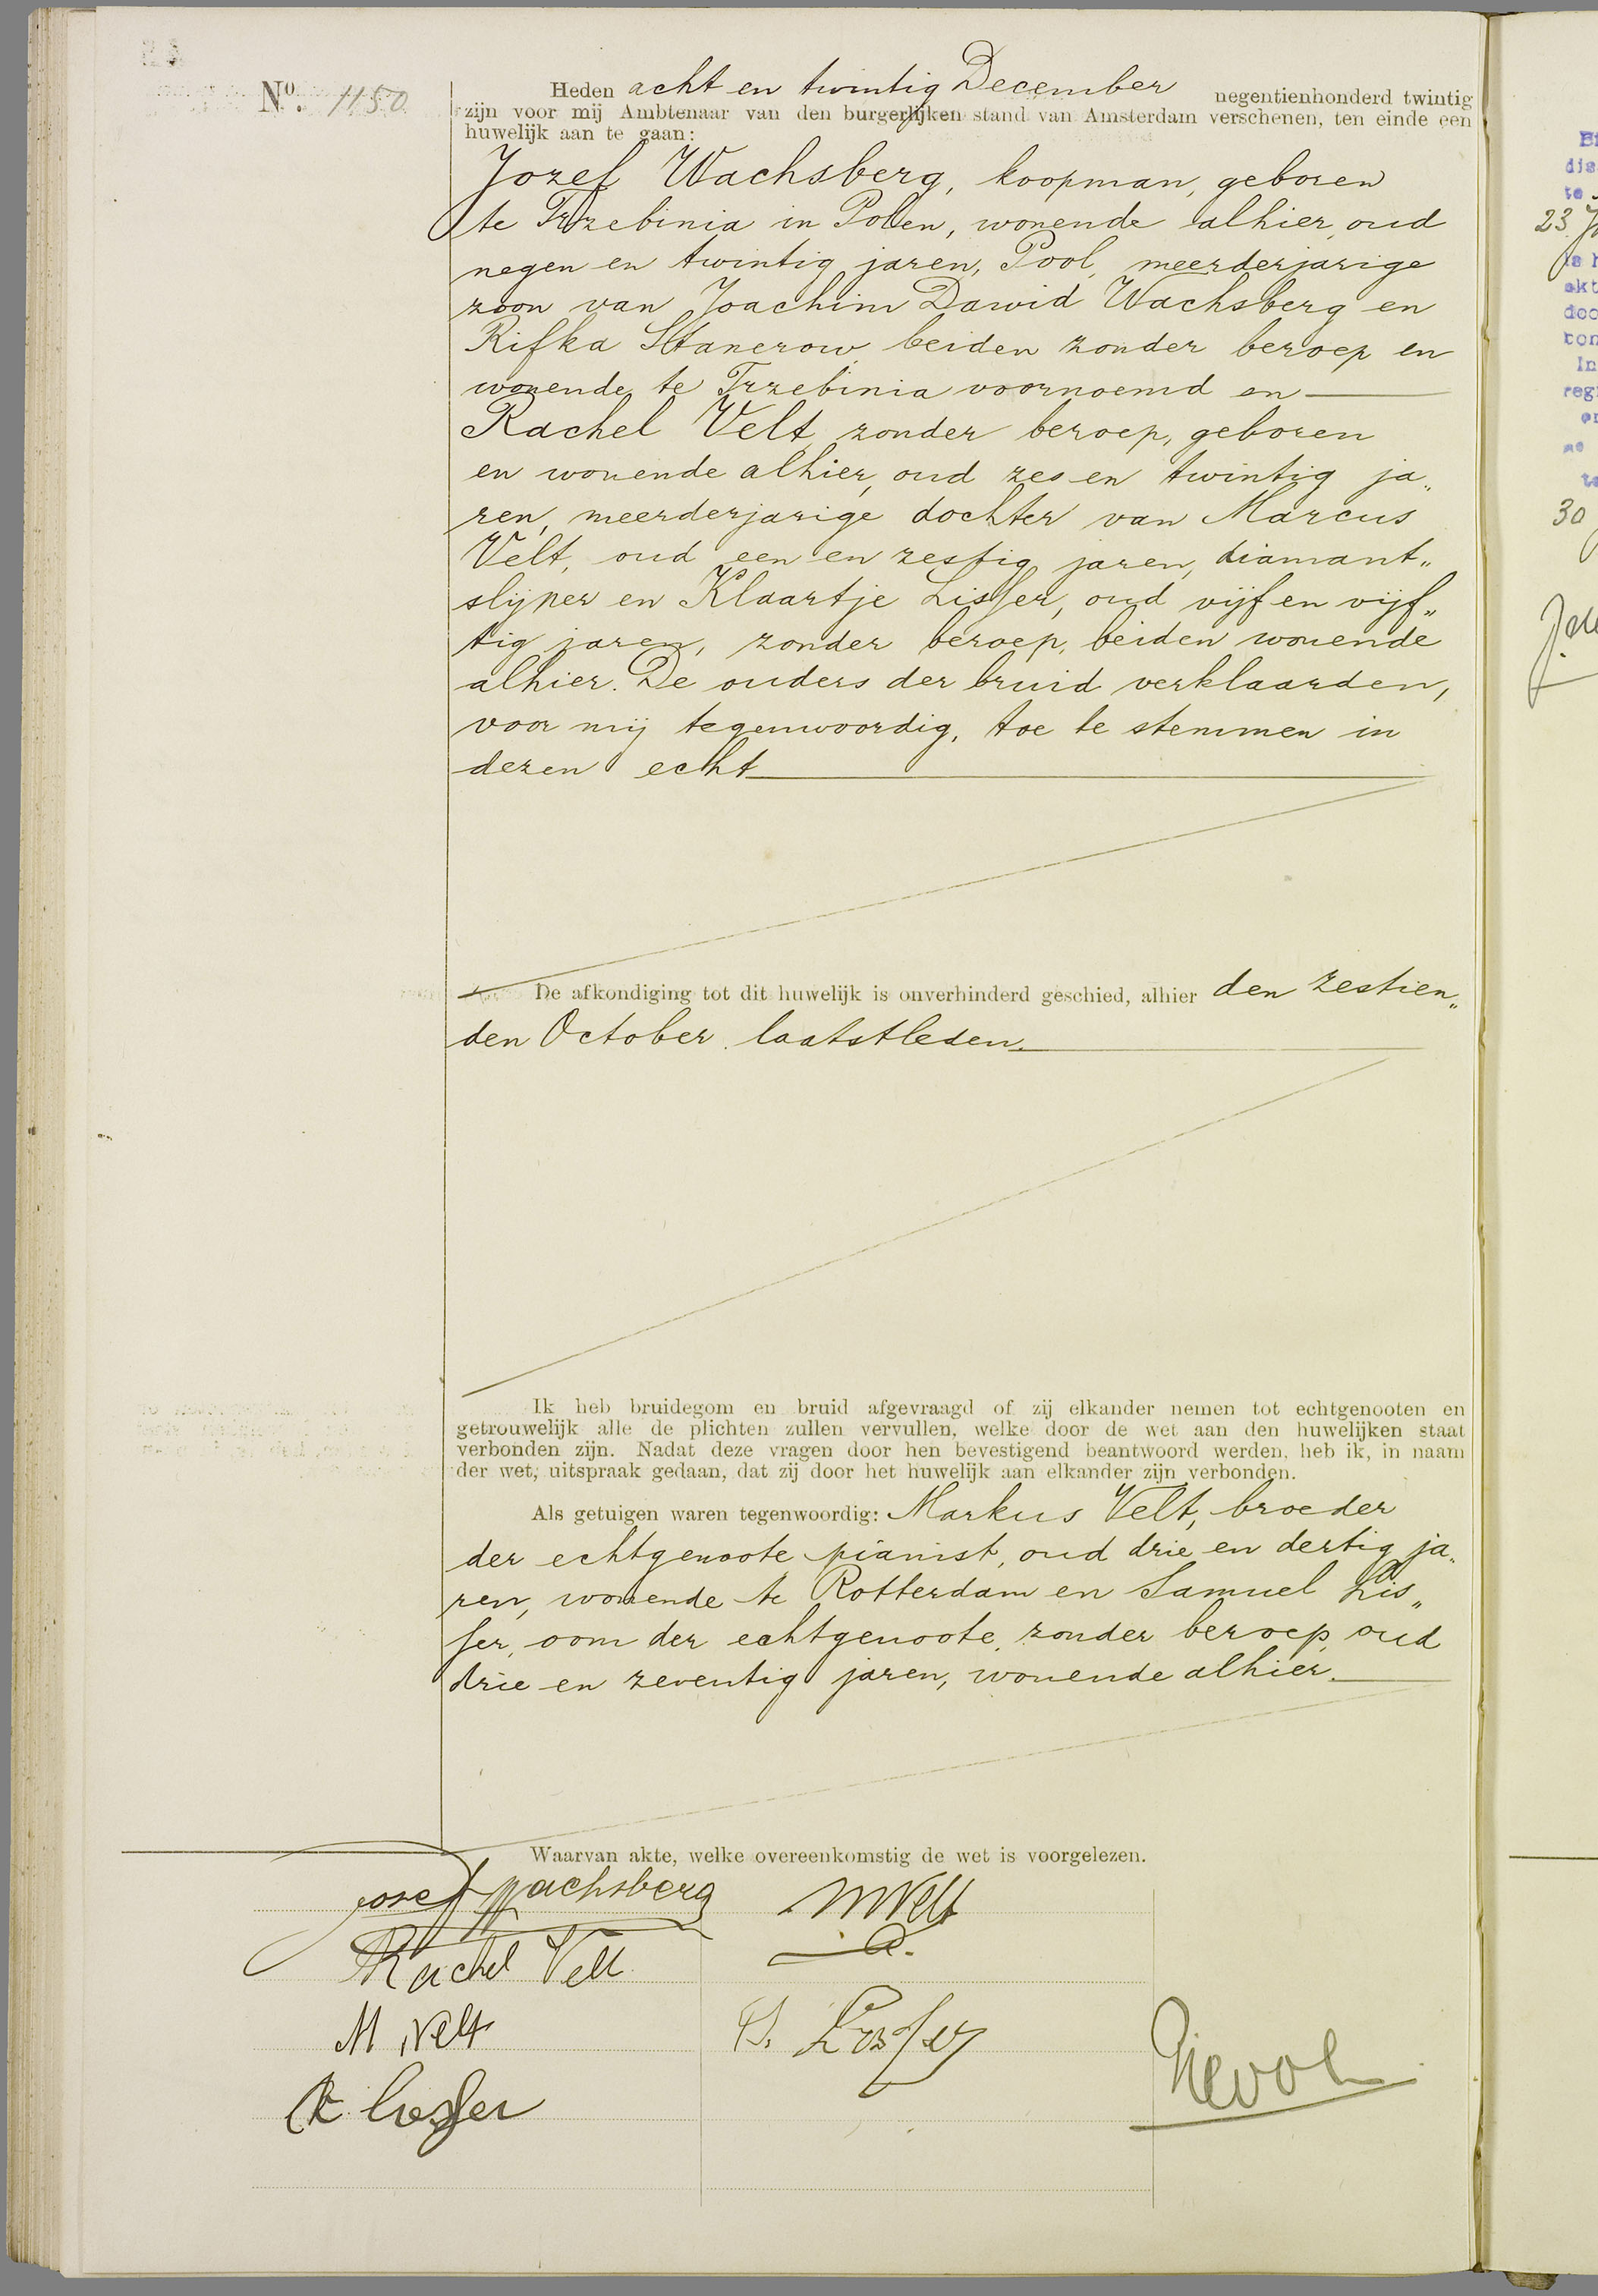 Nº. 1150
Heden acht en twintig December negentienhonderd twintig
zijn voor mij Ambtenaar van den burgerlijken stand van Amsterdam verschenen, ten einde een
huwelijk aan te gaan:
Jozef Wachsberg, koopman, geboren
te Trzebinia in Polen, wonende alhier, oud
negen en twintig jaren, Pool, meerderjarige
zoon van Joachim Dawid Wachsberg en
Rifka Stanerow, beiden zonder beroep en
wonende te Trzebinia voornoemd en
Rachel Velt, zonder beroep, geboren
en wonende alhier, oud zes en twintig ja„
ren, meerderjarige dochter van Marcus
Velt, oud een en zestig jaren, diamant„
slijper en Klaartje Lisser, oud vijf en vijf„
tig jaren, zonder beroep, beiden wonende
alhier. De ouders der bruid verklaarden,
voor mij tegenwoordig, toe te stemmen in
dezen echt
De afkondiging tot dit huwelijk is onverhinderd geschied, alhier den zestien„
den October laatstleden.
Ik heb bruidegom en bruid afgevraagd of zij elkander nemen tot echtgenooten en
getrouwelijk alle de plichten zullen vervullen, welke door de wet aan den huwelijken staat
verbonden zijn. Nadat deze vragen door hen bevestigend beantwoord werden, heb ik, in naam
der wet, uitspraak gedaan, dat zij door het huwelijk aan elkander zijn verbonden.
Als getuigen waren tegenwoordig: Markus Velt, broeder
der echtgenoote, pianist, oud drie en dertig ja„
ren, wonende te Rotterdam en Samuel Lis„
ser, oom der echtgenoote, zonder beroep, oud
drie en zeventig jaren, wonende alhier.
Waarvan akte, welke overeenkomstig de wet is voorgelezen.
Josef Wachsberg
MVelt
Rachel Velt
M Velt
S. Lisser
K Lisser
23
30